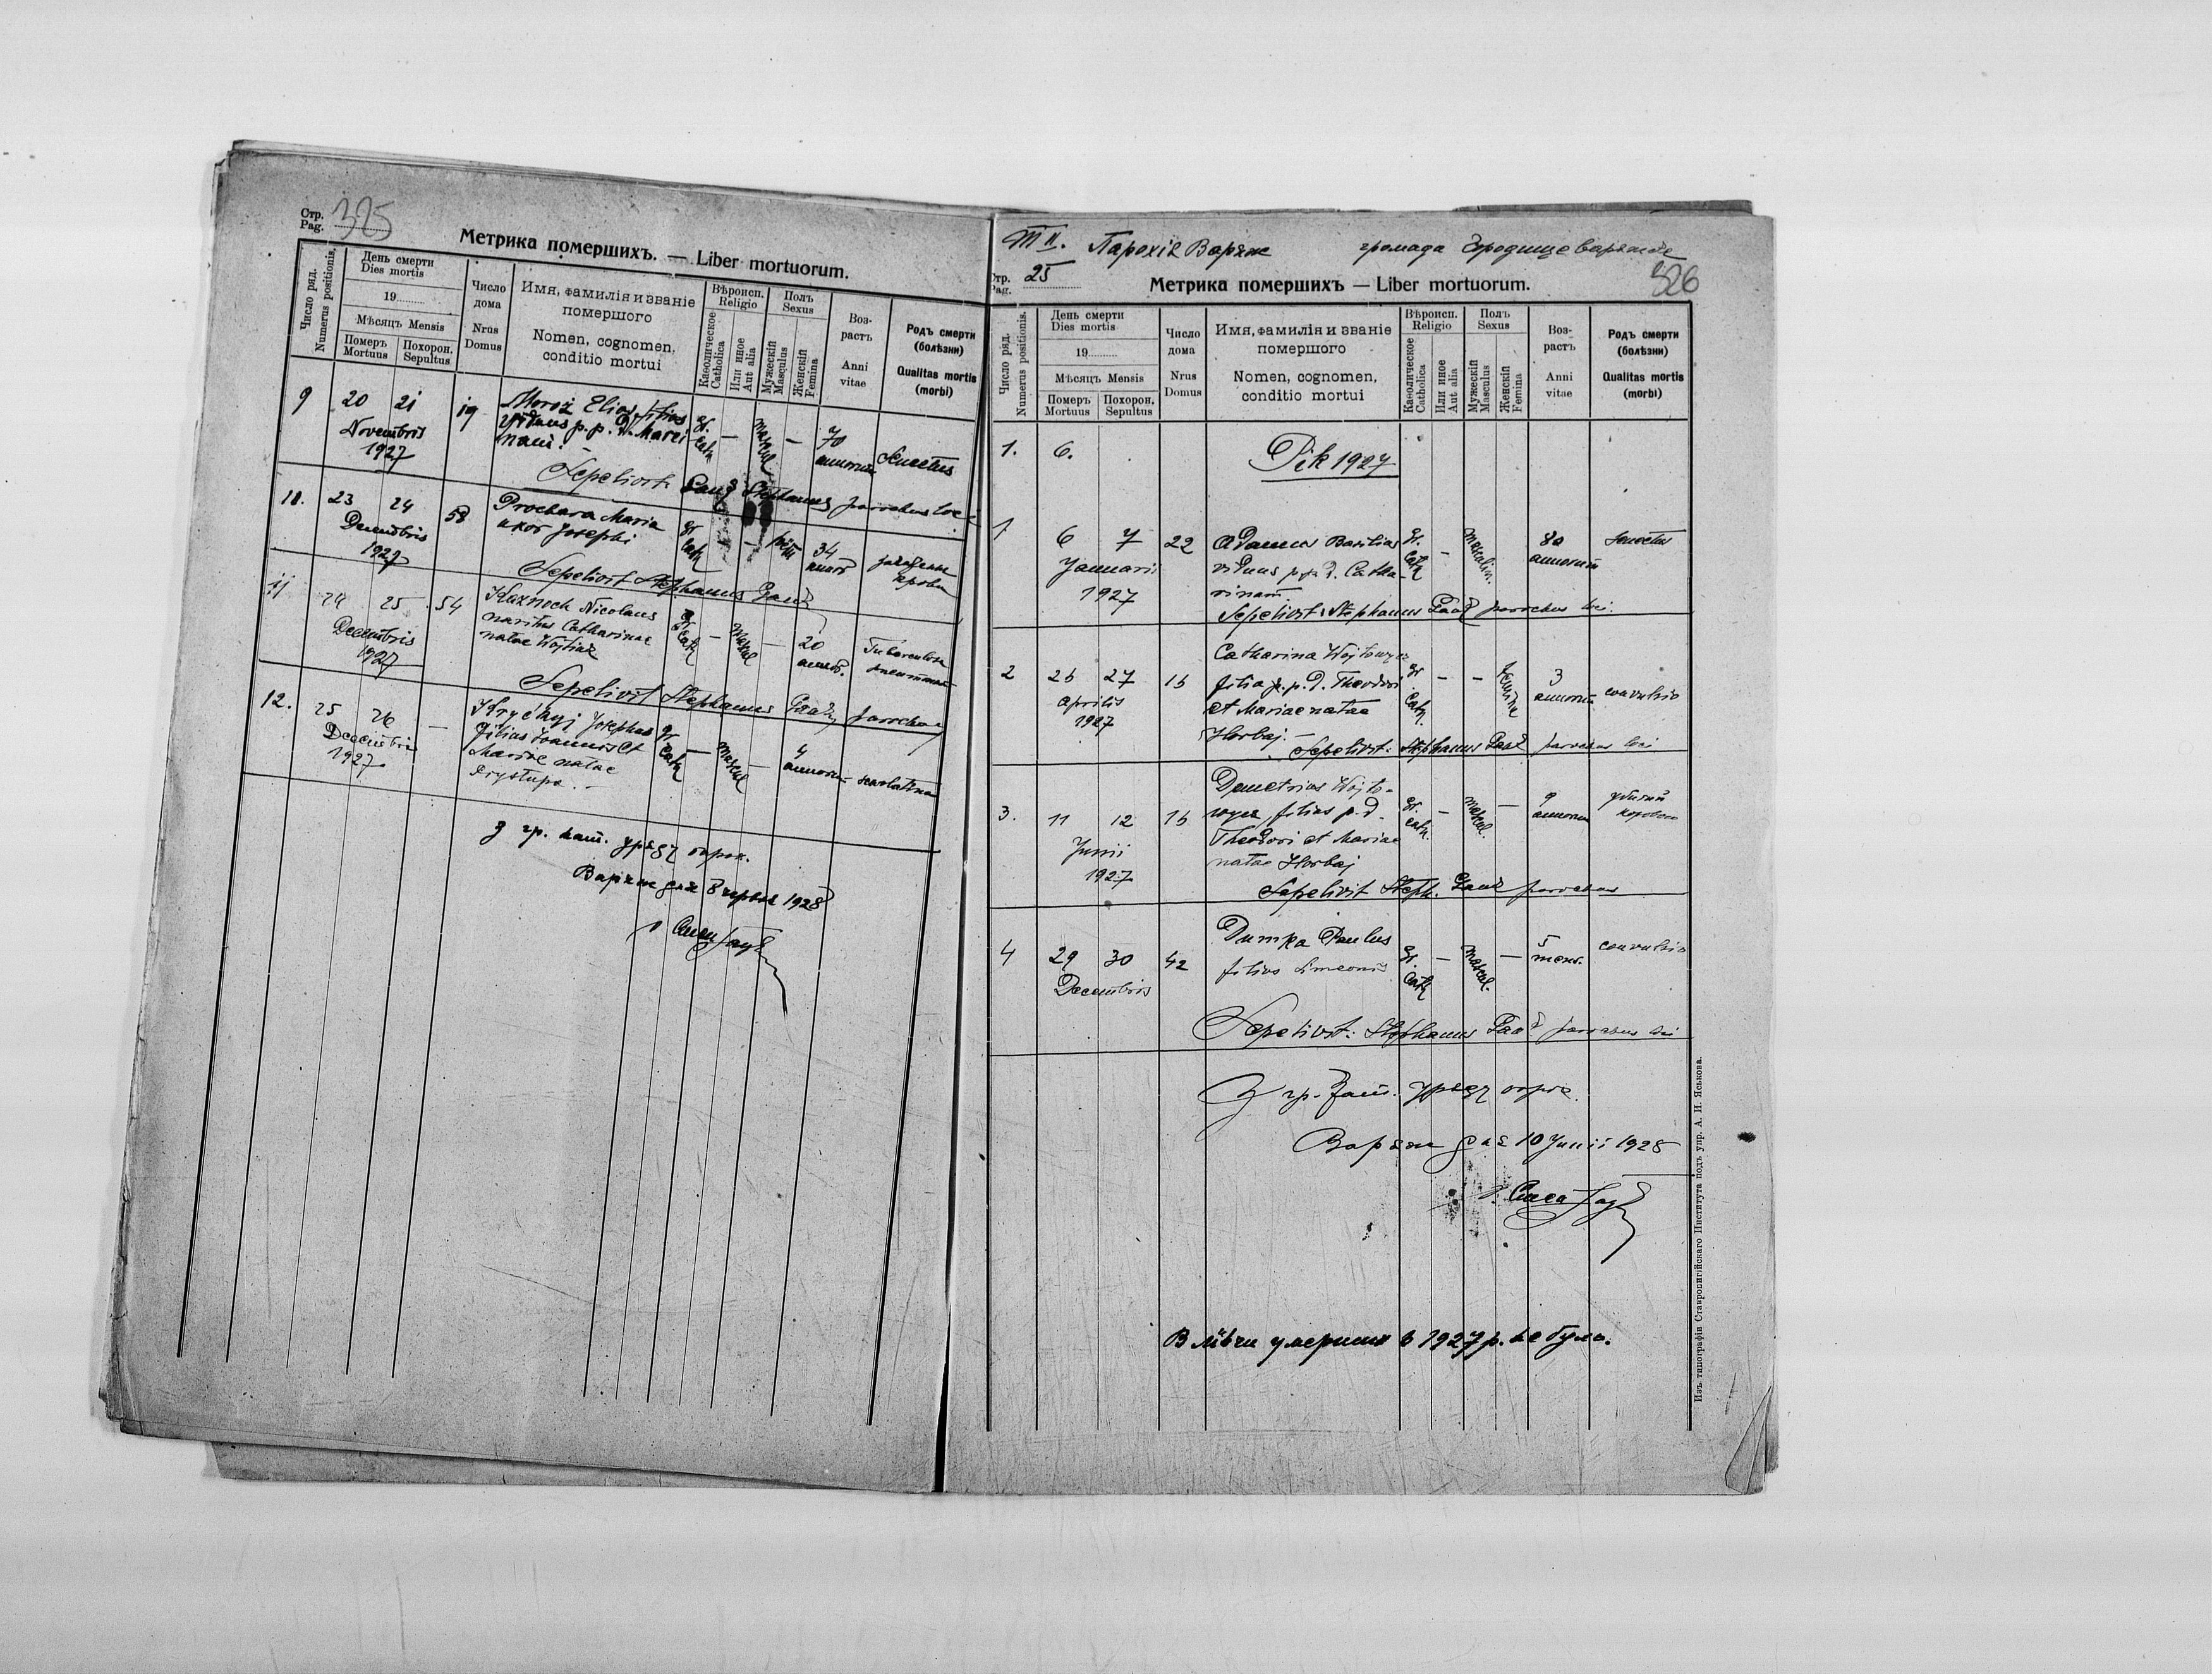 Стр.
Pag. 325
Метрика померших​ъ. — Liber mortuorum.
Число ряд.
Numerus positionis.
День смерти
Dies mortis
19
Мѣсяцъ Mensis
Померъ
Mortuus
Похорон.
Sepultus
Число
дома
Nrus
Domus
Имя, фамилія и званіе
помершого
Nomen, cognomen,
conditio mortui
Вѣроисп.
Religio
Каѳолическое
Catholica
Или иное
Aut alia
Полъ
Sexus
Мужескій
Masculus
Женскій
Femina
Воз-
растъ
Anni
vitae
Родъ смерти
(болѣзни)
Qualitas mortis
(morbi)
9 20 21 19 Moroz Elias filius gr. — mascul — 70
Novembris viduus p. p. d. Marci cath annorum Senectus
1927 nam.
Sepelivit Stephanus parochus loci
10. 23 24 58 Prochara Maria gr. — 34
Decembris uxor Josephi cath annor
1927
Sepelivit Stephanus
11 24 25 54 Nicolaus gr. — mascul — 20 Tuberculosa
Decembris maritus Catharinae cath annor.
1927 natae
Sepelivit Stephanus parochus
12. 25 26 — Josephus gr. — mascul — 4
Decembris filius Joannis et cath annorum scarlatina
1927 Mariae natae
Krystupa. –
З гр. кат. уряду парох.
Варяж дня 8 червня 1928
Т II. Парохія Варяж громада Городище варяжске
Стр.
Pag. 25
326
Метрика помершихъ — Liber mortuorum.
Число ряд.
Numerus positionis.
День смерти
Dies mortis
19
Мѣсяцъ Mensis
Померъ
Mortuus
Похорон.
Sepultus
Число
дома
Nrus
Domus
Имя, фамилія и званіе
помершого
Nomen, cognomen,
conditio mortui
Вѣроисп.
Religio
Каѳолическое
Catholica
Или иное
Aut alia
Полъ
Sexus
Мужескій
Masculus
Женскій
Femina
Воз-
растъ
Anni
vitae
Родъ смерти
(болѣзни)
Qualitas mortis
(morbi)
1. 6.
Рік 1927
1 6 7 22 Adamus Basilius gr. — masculin. 80 Senectus
Januarii viduus p. d. Catha- cath annorum
1927 rinam
Sepelivit: Stephanus parochus loci.
2 26 27 16 Catharina Wojtowycz
filia p. p. d. Theodori gr. — — femina 3 convulsio
Aprilis et Mariae natae cath. annorum
1927 Horbaj. –
Sepelivit: Stephanus parochus loci
3. 11 12 16 Demetrius Wojto-
wycz, filius p. d. gr. — mascul. — 9 убитий
Junii Theodori et Mariae cath. annorum коровою
1927 natae Horbaj
Sepelivit Steph. parochus
4 29 30 42 Dumka Paulus gr. — mascul. — 5 convulsio
Decembris filius Simeonis cath mens.
Sepelivit: Stephanus parochus loci
З гр. кат. уряду парох.
Варяж дня 10 Junii 1928
В Лівчи умерших в 1927 р. не було.
Изъ типографіи Ставропигійскаго Института подъ упр. А. И. Яськова.